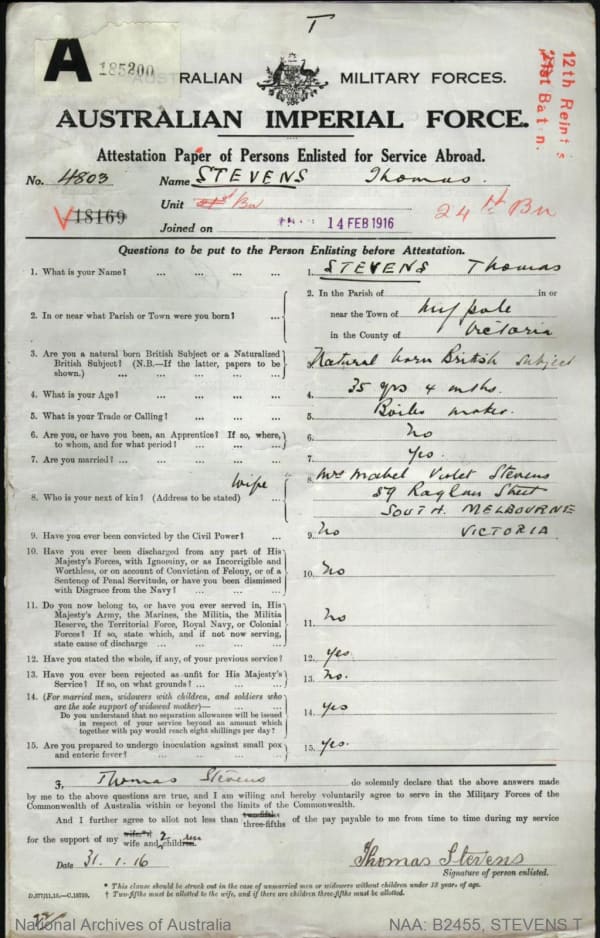 T
A 185200
AUSTRALIAN MILITARY FORCES.
AUSTRALIAN IMPERIAL FORCE.
12th Reinf's
21st Bat'n.
Attestation Paper of Persons Enlisted for Service Abroad.
No. 4803 Name STEVENS Thomas.
18169 Unit 21st Bn 24th Bn
Joined on 14 FEB 1916
Questions to be put to the Person Enlisting before Attestation.
1. What is your Name? ... ... ... ... 1. STEVENS Thomas
2. In or near what Parish or Town were you born? ... 2. In the Parish of in or
near the Town of
in the County of Victoria
3. Are you a natural born British Subject or a Naturalized
British Subject? (N.B.—If the latter, papers to be
shown.) ... ... ... ... ... 3. Natural born British Subject
4. What is your Age? ... ... ... ... 4. 35 yrs 4 mths.
5. What is your Trade or Calling? ... ... ... 5. Boiler maker.
6. Are you, or have you been, an Apprentice? If so, where,
to whom, and for what period? ... ... ... 6. No
7. Are you married? ... ... ... ... ... 7. Yes.
8. Who is your next of kin? (Address to be stated) ... wife 8. Mrs Mabel Violet Stevens
59 Raglan Street
SOUTH MELBOURNE
VICTORIA
9. Have you ever been convicted by the Civil Power? ... 9. No
10. Have you ever been discharged from any part of His
Majesty's Forces, with Ignominy, or as Incorrigible and
Worthless, or on account of Conviction of Felony, or of a
Sentence of Penal Servitude, or have you been dismissed
with Disgrace from the Navy? ... ... ... 10. No
11. Do you now belong to, or have you ever served in, His
Majesty's Army, the Marines, the Militia, the Militia
Reserve, the Territorial Force, Royal Navy, or Colonial
Forces? If so, state which, and if not now serving,
state cause of discharge ... ... ... ... 11. No
12. Have you stated the whole, if any, of your previous service? 12. yes
13. Have you ever been rejected as unfit for His Majesty's
Service? If so, on what grounds? ... ... ... 13. No.
14. (For married men, widowers with children, and soldiers who
are the sole support of widowed mother)—
Do you understand that no separation allowance will be issued
in respect of your service beyond an amount which
together with pay would reach eight shillings per day? ... 14. yes
15. Are you prepared to undergo inoculation against small pox
and enteric fever? ... ... ... ... ... 15. yes.
I, Thomas Stevens do solemnly declare that the above answers made
by me to the above questions are true, and I am willing and hereby voluntarily agree to serve in the Military Forces of the
Commonwealth of Australia within or beyond the limits of the Commonwealth.
And I further agree to allot not less than two-fifths three-fifths of the pay payable to me from time to time during my service
for the support of my wife*† wife and 2 children
Date 31.1.16 Thomas Stevens
Signature of person enlisted.
* This clause should be struck out in the case of unmarried men or widowers without children under 18 years of age.
† Two-fifths must be allotted to the wife, and if there are children three-fifths must be allotted.
National Archives of Australia NAA: B2455, STEVENS T